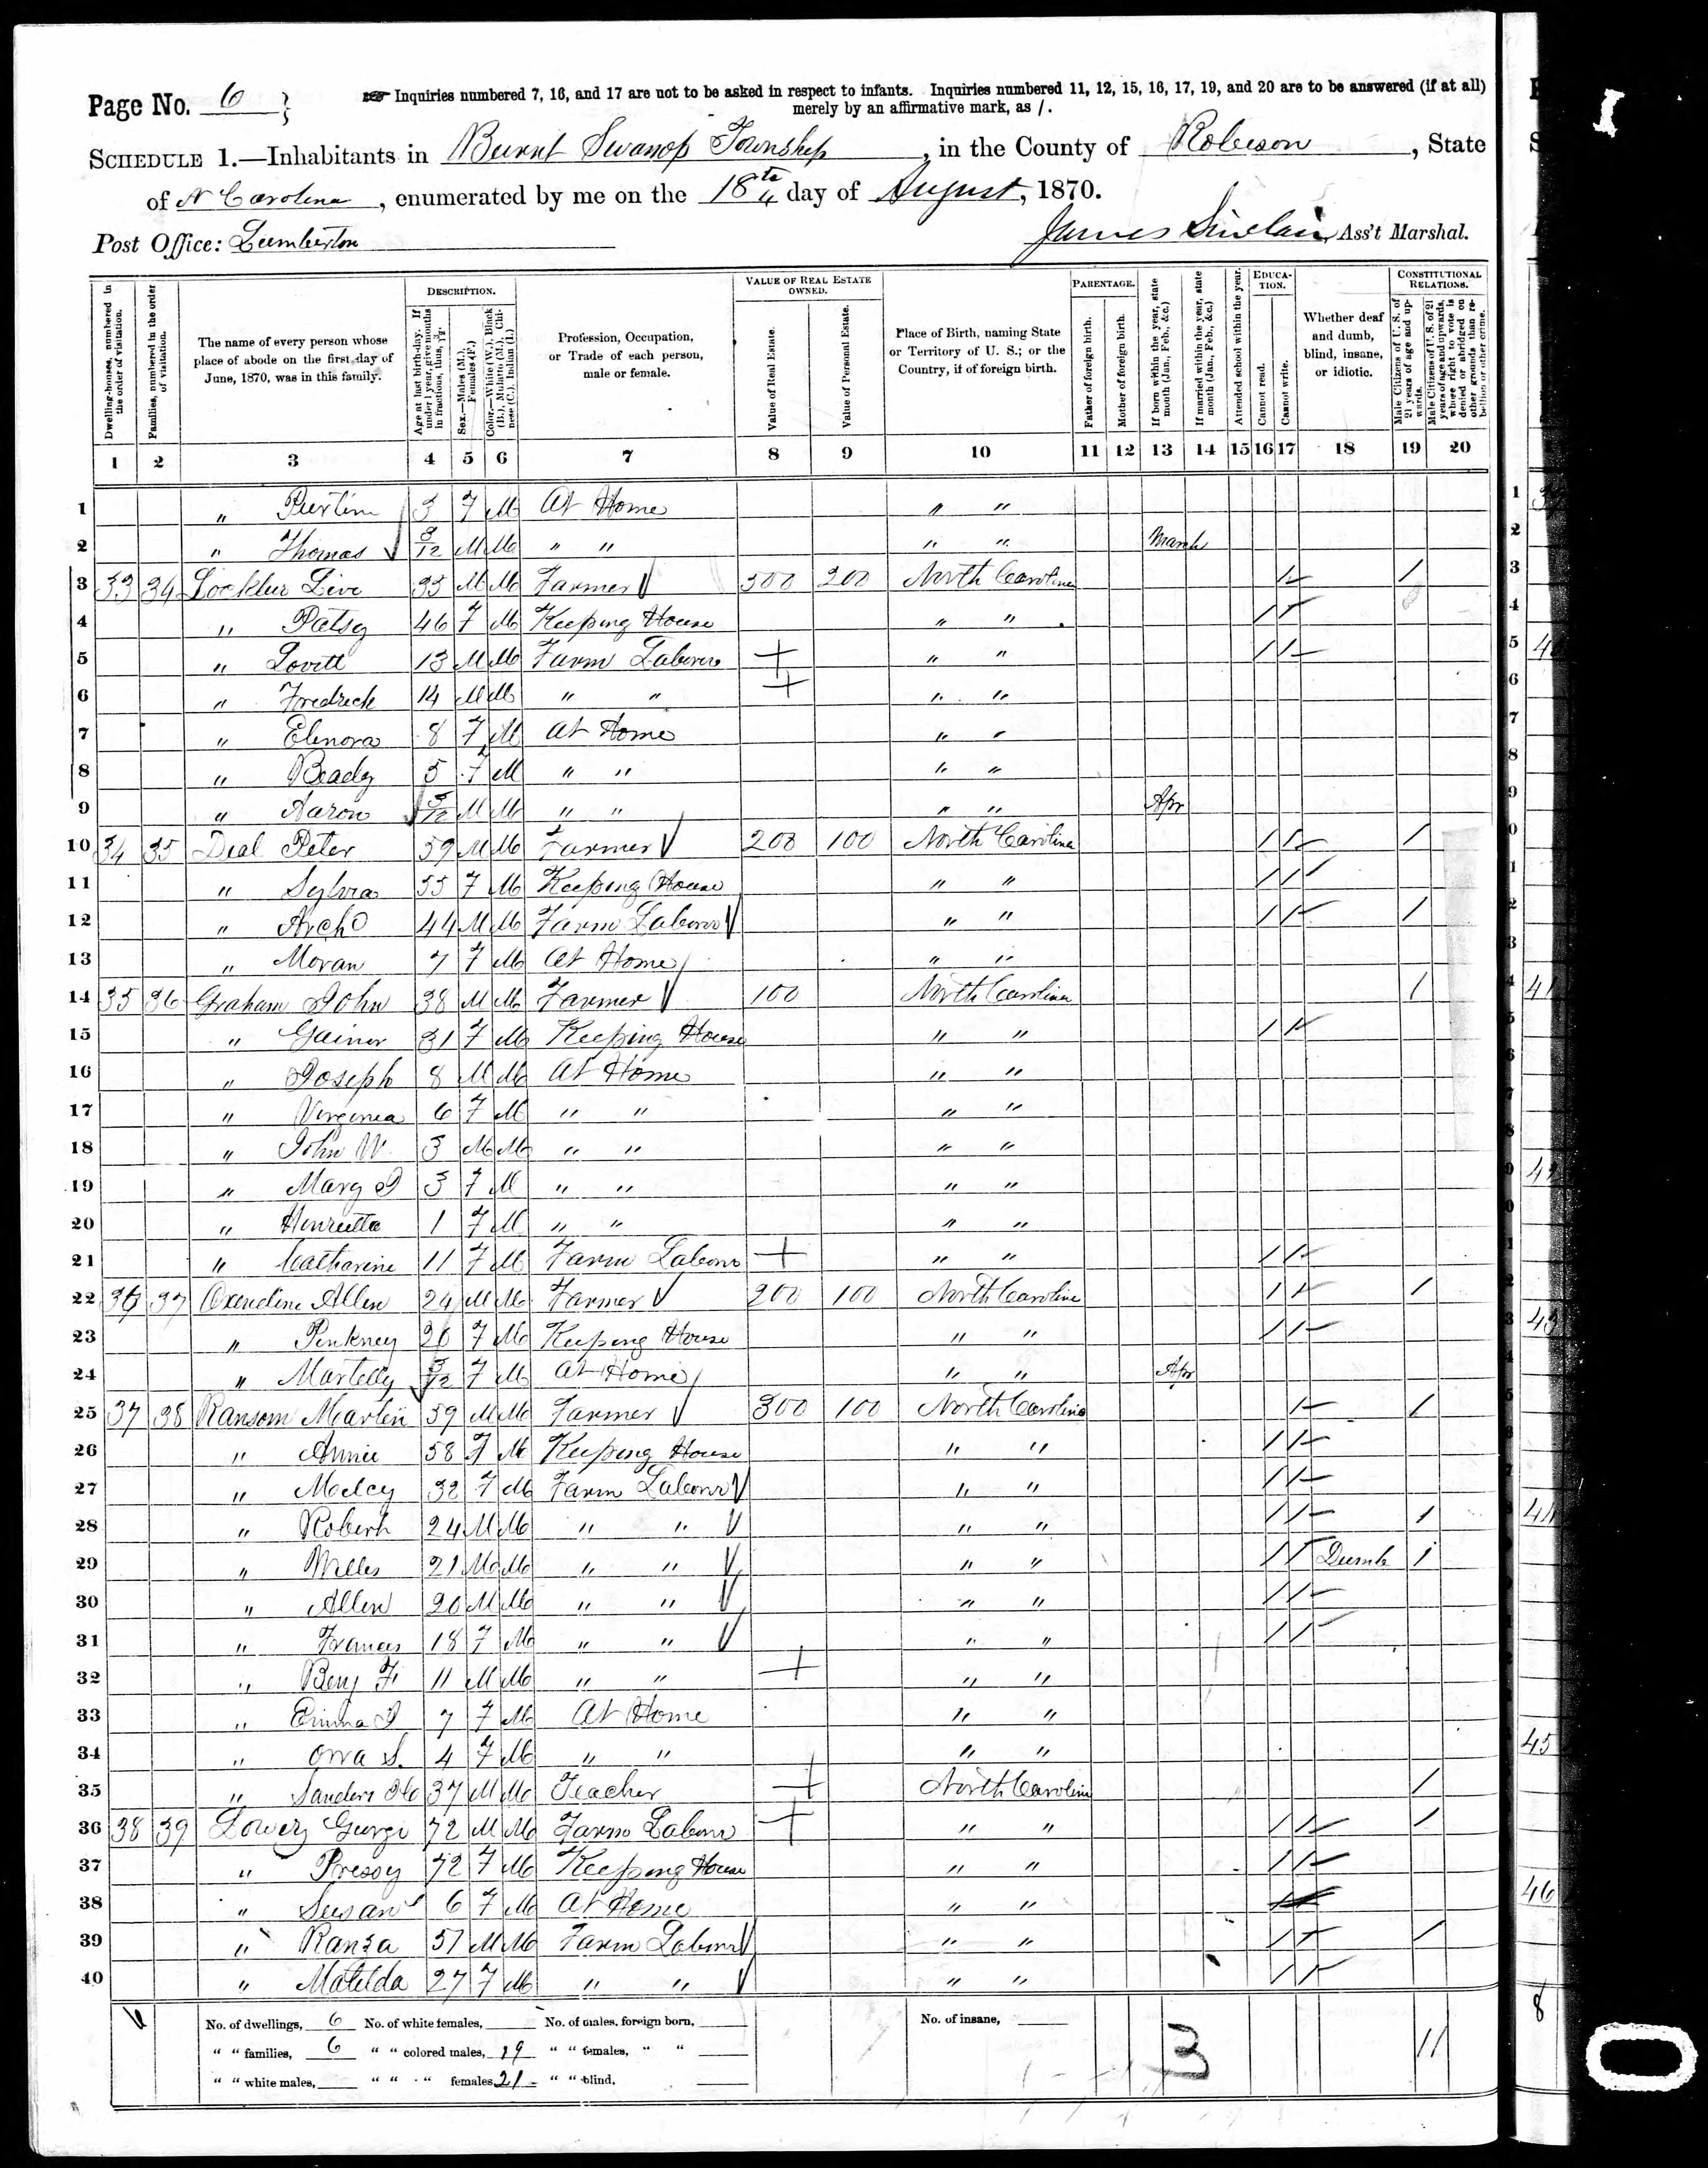 Page No. 6
Inquiries numbered 7, 16, and 17 are not to be asked in respect to infants. Inquiries numbered 11, 12, 15, 16, 17, 19, and 20 are to be answered (if at all)
merely by an affirmative mark, as /.
SCHEDULE 1.—Inhabitants in Burnt Swamp Township, in the County of Robeson, State
of N Carolina, enumerated by me on the 18th day of August, 1870.
Post Office: Lumberton
James Sinclair, Ass't Marshal.
Dwelling-houses, numbered in the order of visitation.
Families, numbered in the order of visitation.
The name of every person whose place of abode on the first day of June, 1870, was in this family.
DESCRIPTION.
Age at last birth-day. If under 1 year, give months in fractions, thus, 3/12.
Sex.—Males (M.), Females (F.)
Color.—White (W.), Black (B.), Mulatto (M.), Chinese (C.), Indian (I.)
Profession, Occupation, or Trade of each person, male or female.
VALUE OF REAL ESTATE OWNED.
Value of Real Estate.
Value of Personal Estate.
Place of Birth, naming State or Territory of U. S.; or the Country, if of foreign birth.
PARENTAGE.
Father of foreign birth.
Mother of foreign birth.
If born within the year, state month (Jan., Feb., &c.)
If married within the year, state month (Jan., Feb., &c.)
Attended school within the year.
EDUCATION.
Cannot read.
Cannot write.
Whether deaf and dumb, blind, insane, or idiotic.
CONSTITUTIONAL RELATIONS.
Male Citizens of U. S. of 21 years of age and upwards.
Male Citizens of U. S. of 21 years of age and upwards, whose right to vote is denied or abridged on other grounds than rebellion or other crime.
1 2 3 4 5 6 7 8 9 10 11 12 13 14 15 16 17 18 19 20
1 " 3 F M At Home " "
2 " Thomas M M " " " " March
3 33 34 Locklur M M Farmer 200 North Carolina / /
4 " Patsy 46 F M Keeping House " " / /
5 " Lovett 13 M M Farm Laborer " " / /
6 " Fredrick 14 M M " " " "
7 " Elenora 8 F M At Home " "
8 " Beady 5 F M " " " "
9 " Aaron M M " " " " Apr
10 34 35 Deal Peter 59 M M Farmer 200 100 North Carolina / / /
11 " Sylvia 55 F M Keeping House " " / /
12 " Arch 44 M M Farm Laborer " " / / /
13 " Moran 7 F M At Home " "
14 35 36 Graham John 38 M M Farmer 100 North Carolina /
15 " Gainer 31 F M Keeping House " " / /
16 " Joseph 8 M M At Home " "
17 " Virginia 6 F M " " " "
18 " John W 3 M M " " " "
19 " Mary J 3 F M " " " "
20 " Henrietta 1 F M " " " "
21 " Catharine 11 F M Farm Laborer " " / /
22 36 37 Oxendine Allen 24 M M Farmer 200 100 North Carolina / / /
23 " Pinkney 20 F M Keeping House " " / /
24 " F M At Home " " Apr
25 37 38 Ransom Martin 59 M M Farmer 300 100 North Carolina / /
26 " Annie 58 F M Keeping House " " / /
27 " Melcy 32 F M Farm Laborer " " / /
28 " Robert 24 M M " " " " / / /
29 " Willes 21 M M " " " " / / Dumb /
30 " Allen 20 M M " " " " / /
31 " Frances 18 F M " " " " / /
32 " Benj F 11 M M " " " "
33 " Emma J 7 F M At Home " "
34 " Orra S. 4 F M " " " "
35 " Sanders 37 M M Teacher North Carolina /
36 38 39 Lowery George 72 M M Farm Laborer " " / / /
37 " 72 F M Keeping House " " / /
38 " Susan 6 F M At Home " "
39 " Ranza 51 M M Farm Laborer " " / / /
40 " Matilda 27 F M " " " " / /
No. of dwellings, 6 No. of white females, No. of males, foreign born, No. of insane,
" " families, 6 " " colored males, 19 " " females, " "
" " white males, " " " females, 21 " " blind,
3
11